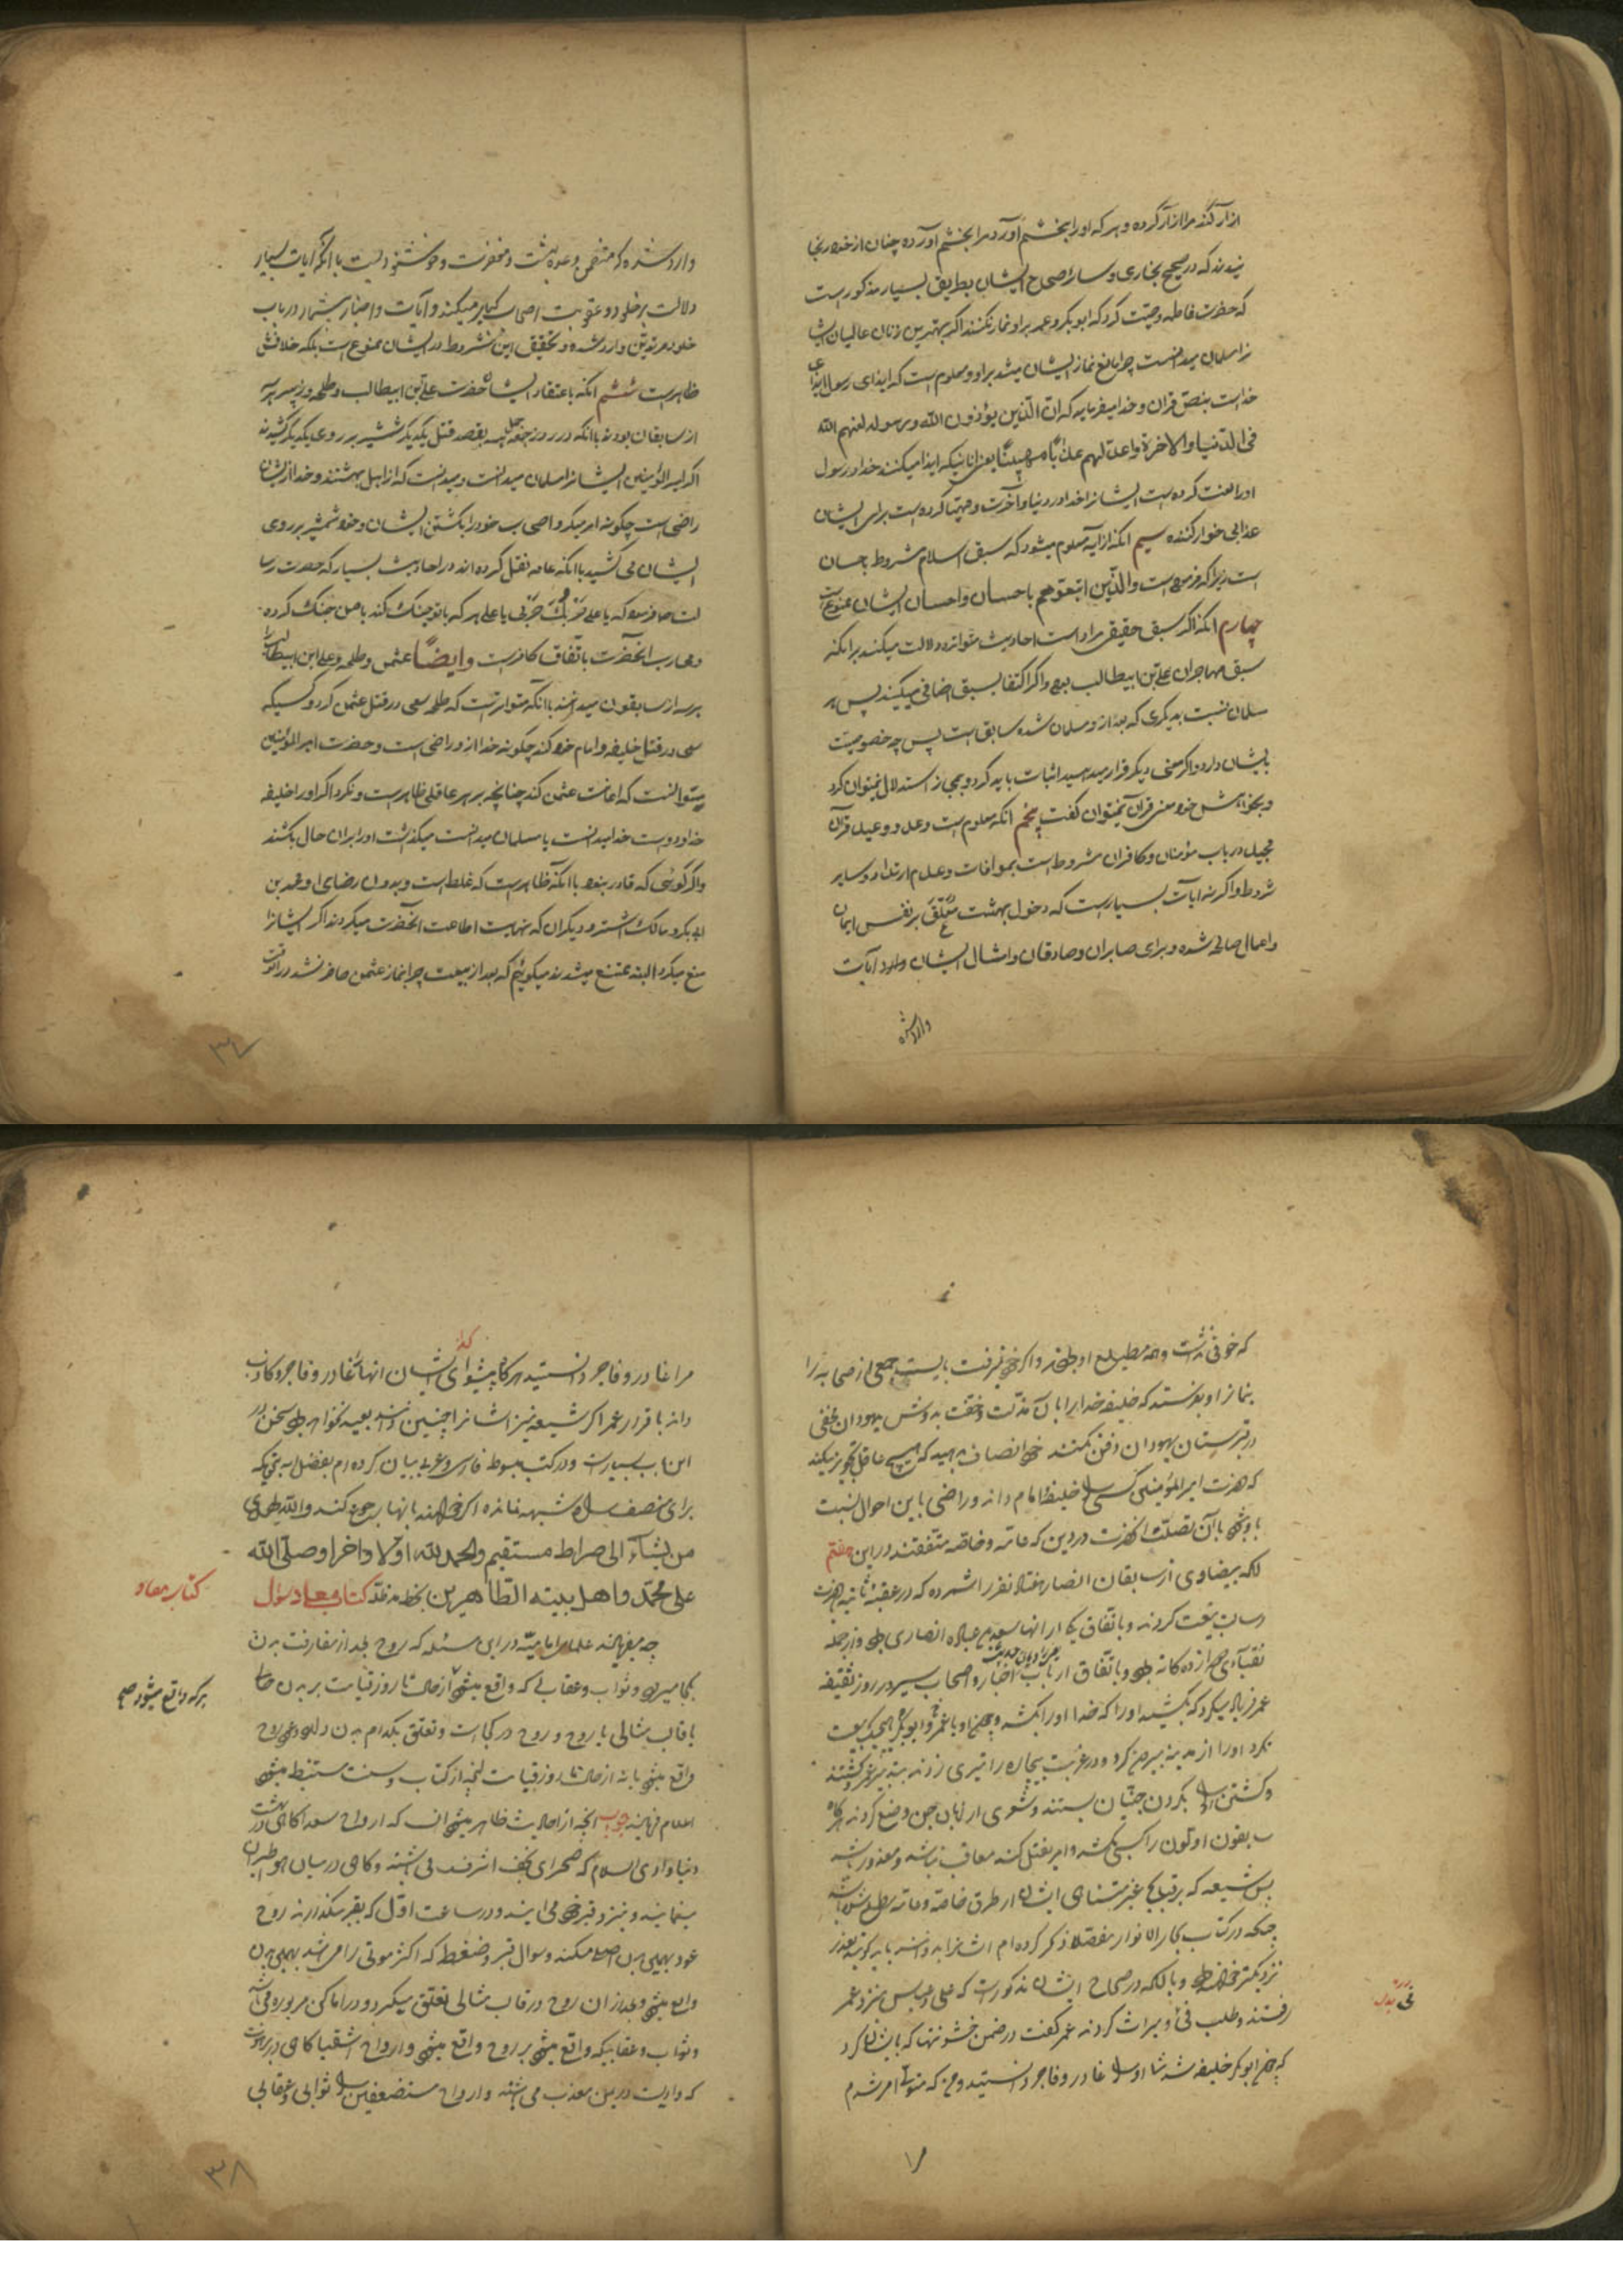 ازار کند مرا ازار کرده و هر که او را بخشم آورد مرا بخشم آورده چنان از خود رنجا
نیدند که در صحیح بخاری و سایر اصحاح ایشان بطریق بسیار مذکور است
که حضرت فاطمه وصیت کرد که ابوبکر و عمر بر او نماز نکنند اگر بهترین زنان عالمیان ایشا
نرا مسلمان میدانست چرا مانع نماز ایشان میشد بر او و معلوم است که ایذای رسول ایذای
خداست بنص قران و خدا میفرماید که ان الذین یؤذون الله ورسوله لعنهم الله
فی الدنیا والاخرة واعد لهم عذابا مهینا یعنی انانیکه ایذا میکنند خدا و رسول
او را لعنت کرده است ایشانرا خدا در دنیا و آخرت و مهیا کرده است برای ایشان
عذابی خوار کننده سیم انکه از ایه معلوم میشود که سبق اسلام مشروط باحسان
است زیرا که فرموده است والذین اتبعوهم باحسان و احسان ایشان ممنوعست
چهارم انکه اگر سبق حقیقی مراد است احادیث متواتره دلالت میکند بر انکه
سبق مهاجران علی بن ابیطالب بود و اگر اکتفا بسبق اضافی میکنند پس هر
مسلمان نسبت بدیگری که بعد از او مسلمان شده سابق است پس چه خصوصیت
بایشان دارد و اگر معنی دیگر قرار میدهید اثبات باید کرد و بمجاز استدلال نمیتوان کرد
و بخواهش خود معنی قران نمیتوان گفت پنجم انکه معلوم است وعد و وعید قران
مجید در باب مؤمنان و کافران مشروط است بموافات و عدم ارتداد و سایر
شروط و اگر نه آیات بسیار است که دخول بهشت معلق بر نفس ایمان
و اعمال صالحه شده و برای صابران و صادقان و امثال ایشان وارد آیات
وارد شده
وارد شده که متضمن وعده بهشت و مغفرت و خوشنودیست با انکه آیات بسیار
دلالت بر خلود و عقوبت اصحاب کبایر میکند و آیات و اخبار بیشمار در باب
خلود مرتدین وارد شده و تحقیق این شروط در ایشان ممنوع است بلکه خلافش
ظاهر است ششم انکه باعتقاد ایشان حضرت علی بن ابیطالب و طلحه و زبیر هر سه
از سابقان بودند با انکه در روز جمل همه بقصد قتل یکدیگر شمشیر بر روی یکدیگر کشیدند
اگر امیر المؤمنین ایشانرا مسلمان میدانست و میدانست که از اهل بهشتند و خدا از ایشان
راضی است چگونه امر میکرد اصحاب خود را بکشتن ایشان و خود شمشیر بر روی
ایشان می کشید با انکه عامه نقل کرده اند در احادیث بسیار که حضرت رسا
لت صلعم فرموده که یا علی حربک حربی یا علی هر که با تو جنگ کند با من جنگ کرده
و محارب انحضرت باتفاق کافرست و ایضا عثمن و طلحه و علی ابن ابیطالب را
هر سه از سابقون میدانند با انکه متواتر است که طلحه سعی در قتل عثمن کرد و کسیکه
سعی در قتل خلیفه و امام خود کند چگونه خدا از او راضی است و حضرت امیر المؤمنین
میتوانست که اعانت عثمن کند چنانچه بر هر عاقلی ظاهر است و نکرد اگر او را خلیفه
خدا و دوست خدا میدانست یا مسلمان میدانست میگذاشت او را بران حال بکشند
و اگر گوئی که قادر نبود با انکه ظاهر است که غلط است و بدون رضای او محمد بن
ابی بکر و مالک اشتر و دیگران که نهایت اطاعت انحضرت میکردند اگر ایشانرا
منع میکرد البته ممتنع میشدند میگوئیم که بعد از بیعت چرا بنماز عثمن حاضر نشد در انوقت
۳۷
که خوفی نداشت و همه مطیع او بودند و اگر خود نرفت بایست جمعی از صحابه را
بنماز او بفرستد که خلیفه خدا را با آن مذلت و خفت بدوش یهودان مخفی
در قبرستان یهودان دفن نکنند خود انصاف بدهید که هیچ عاقل تجویز میکند
که حضرت امیر المؤمنین کسی را خلیفه و امام داند و راضی باین احوال نسبت
باو شود با آن تصلب انحضرت در دین که عامه و خاصه متفقند در این هفتم
انکه بیضاوی از سابقان انصار هفتاد نفر را شمرده که در عقبه ثانیه بحضرت
رسالت بیعت کردند و باتفاق یکی از انها سعد بن عباده انصاری بود و از جمله
نقبای دوازده گانه بود و باتفاق ارباب اخبار و اصحاب سیر در روز سقیفه
عمر فریاد میکرد که بکشید او را که خدا او را بکشد و چون او با عمر و ابوبکر هیچیک بیعت
نکرد او را از مدینه بیرون کرد و در غربت بیچاره را تیری زدند
و کشتن او را بگردن جنیان بستند و شعری از زبان جن وضع کردند هرگاه
سابقون اولون را کسی بکشد و امر بقتل کند معاقب نباشد و معذور باشد
پس شیعه که بر قبایح غیر متناهی ایشان از طرق خاصه و عامه مطلع شده باشند
چنانکه در کتاب بحار الانوار مفصلا ذکر کرده ام ایشانرا بد دانسته بد گویند بعذر
نزدیکتر خواهند بود و با انکه در صحاح ایشان مذکور است که علی و عباس نزد عمر
رفتند و طلب فئ و میراث کردند عمر گفت در ضمن خشونتها که بایشان کرد
که چون ابوبکر خلیفه شد شما او را غادر و فاجر دانستید و من که متولی امر شدم
مرا
مرا غادر و فاجر دانستید هرگاه پیشوای ایشان انها را غادر و فاجر و کاذب
داند باقرار عمر اگر شیعه نیز ایشانرا چنین دانند بعید نخواهد بود سخن در
این باب بسیارست و در کتب مبسوط فارسی و عربی بیان کرده ام بفضل الهی
برای منصف راه شبهه نمانده اگر خواهند بانها رجوع کنند والله یهدی
من یشاء الی صراط مستقیم والحمد لله اولا واخرا وصلی الله
علی محمد واهل بیته الطاهرین کتاب معاد سؤال
کتاب معاد
چه میفرمایند علماء امامیه در این مسئله که روح بعد از مفارقت بدن
بکجا میرود و ثواب و عقابی که واقع میشود از حال تا روز قیامت بر بدن
هر که واقع میشود صح
یا قالب مثالی یا روح و روح در کجاست و تعلق بکدام بدن دارد
واقع میشود یا نه از حال تا روز قیامت انچه از کتاب و سنت مستنبط میشود
اعلام فرمایند جواب انچه از احادیث ظاهر میشود انست که ارواح سعدا گاهی در بهشت
دنیا و وادی السلام که صحرای نجف اشرفست می باشند و گاهی در میان هوا طیران
مینمایند و بنزد قبر خود می ایند و در ساعت اول که بقبر میگذارند روح
عود بهمین بدن اصلی میکند و سوال قبر و ضغطه که اکثر موتی را میباشد بهمین بدن
واقع میشود و بعد از ان روح در قالب مثالی تعلق میگیرد و در اماکن مزبوره میباشد
و ثواب و عقابیکه واقع میشود بر روح واقع میشود و ارواح اشقیا گاهی در برهوت
که وادیست در یمن معذب می باشند و ارواح مستضعفین را ثوابی و عقابی
۳۸